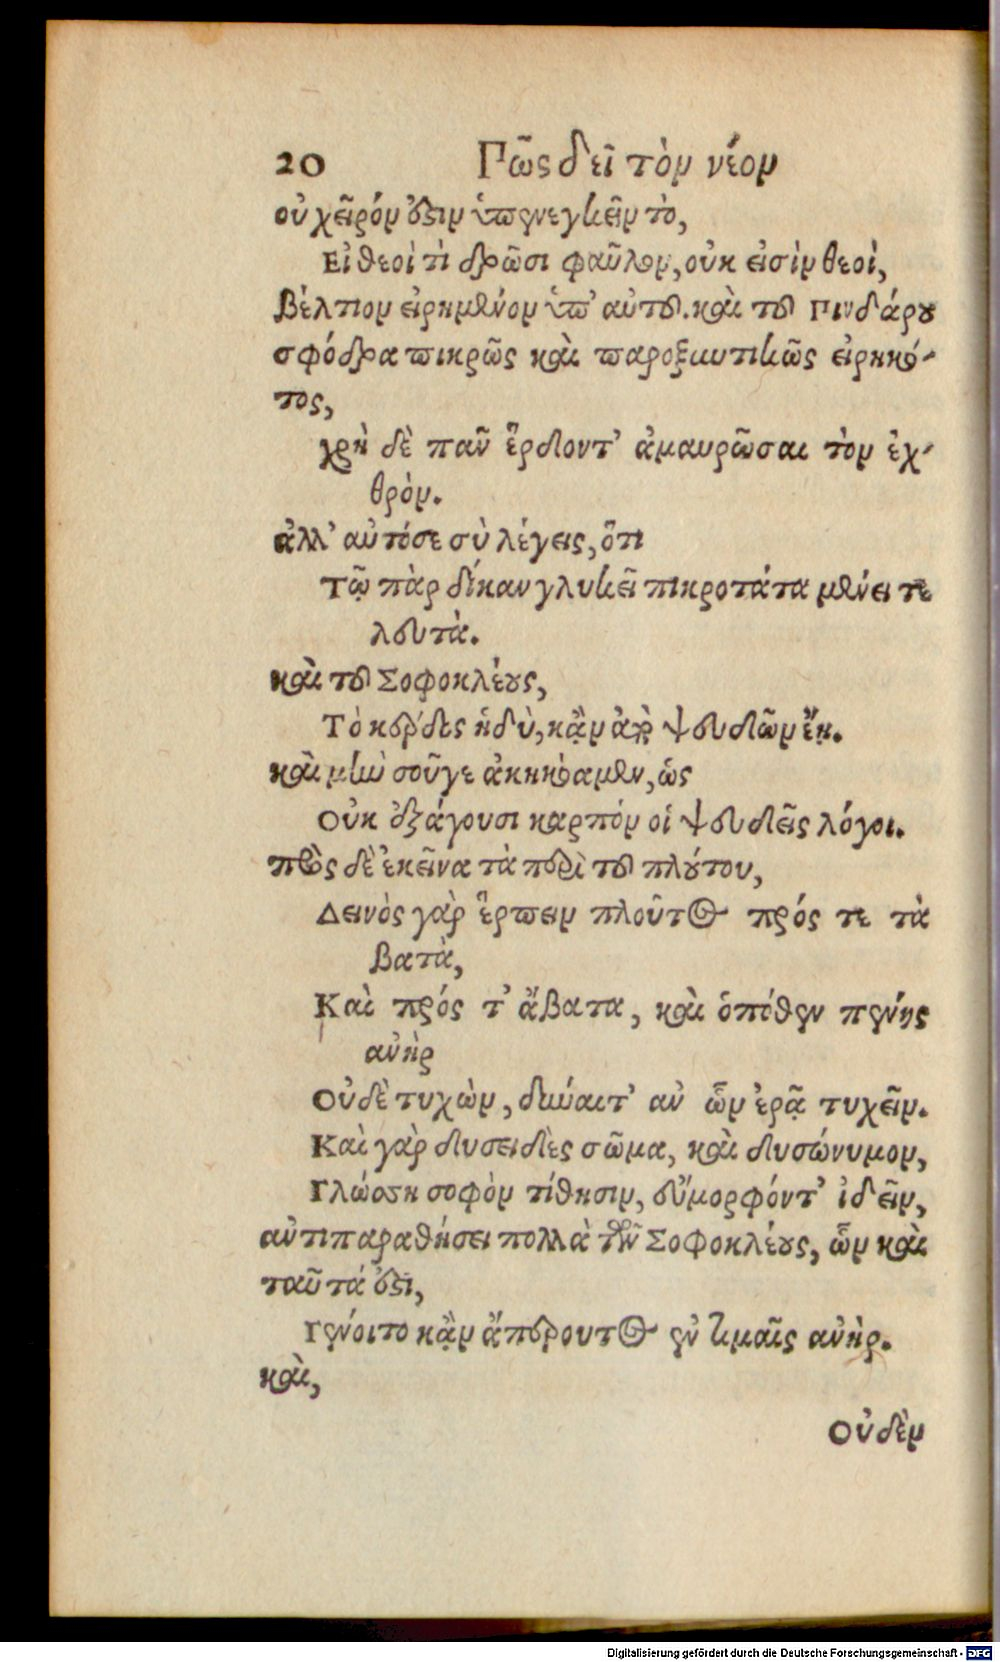 20 Πῶς δεῖ τὸν νέον
οὐ χεῖρόν ἐστιν ὑπενεγκεῖν τὸ,
Εἰ θεοί τὶ δρῶσι φαῦλον, οὐκ εἰσὶν θεοὶ,
βέλτιον εἰρημένον ὑπ' αὐτοῦ. καὶ τοῦ Πινδάρου
σφόδρα πικρῶς καὶ παροξυντικῶς εἰρηκό-
τος,
χρὴ δὲ πᾶν ἔρδοντ' ἀμαυρῶσαι τὸν ἐχ-
θρὸν.
ἀλλ' αὐτόσε σὺ λέγεις, ὅτι
Τῷ πὰρ δίκαν γλυκεῖ πικροτάτα μένει τε
λευτὰ.
καὶ τοῦ Σοφοκλέους,
Τὸ κέρδος ἡδὺ, κᾂν ἀπὸ ψευδῶν ἔῃ.
καὶ μὴν σοῦγε ἀκηκόαμεν, ὡς
Οὐκ ἐξάγουσι καρπόν οἱ ψευδεῖς λόγοι.
πρὸς δὲ ἐκεῖνα τὰ περὶ τοῦ πλούτου,
Δεινὸς γὰρ ἕρπειν πλοῦτος πρός τε τὰ
βατὰ,
Καὶ πρός τ' ἄβατα, καὶ ὁπόθεν πένης
ἀνὴρ
Οὐδὲ τυχὼν, δύναιτ' ἀν ὧν ἐρᾷ τυχεῖν.
Καὶ γὰρ δυσειδὲς σῶμα, καὶ δυσώνυμον,
Γλώσσῃ σοφὸν τίθησιν, εὔμορφόντ' ἰδεῖν,
ἀντιπαραθήσει πολλὰ τῶν Σοφοκλέους, ὧν καὶ
ταῦτά ἐστι,
Γένοιτο κᾂν ἄπλουτος ἐν τιμαῖς ἀνὴρ.
καὶ,
Οὐδὲν
Digitalisierung gefördert durch die Deutsche Forschungsgemeinschaft - DFG